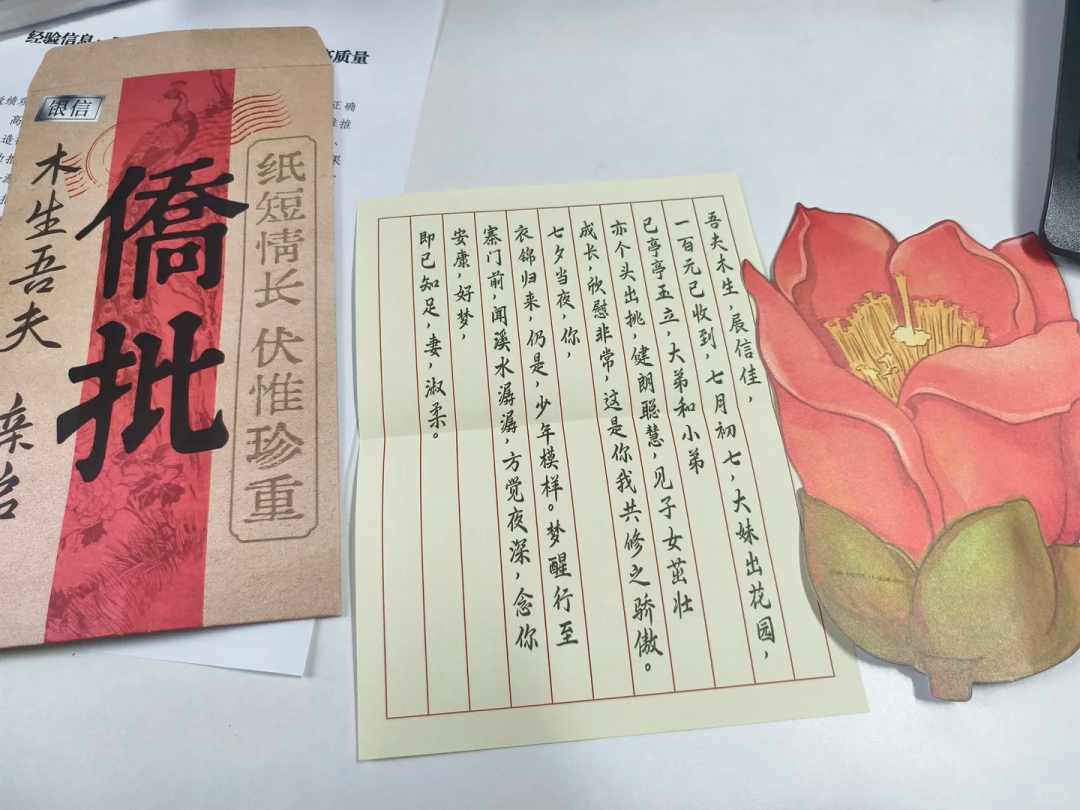 经验信息：
质量
正确
银信
木生吾夫 亲
僑批
纸短情长 伏惟珍重
吾夫木生，展信佳，
一百元已收到，七月初七，大妹出花园，
已亭亭玉立，大弟和小弟
亦个头出挑，健朗聪慧，见子女茁壮
成长，欣慰非常，这是你我共修之骄傲。
七夕当夜，你，
衣锦归来，仍是，少年模样。梦醒行至
寨门前，闻溪水潺潺，方觉夜深，念你
安康，好梦，
即已知足，妻，淑柔。